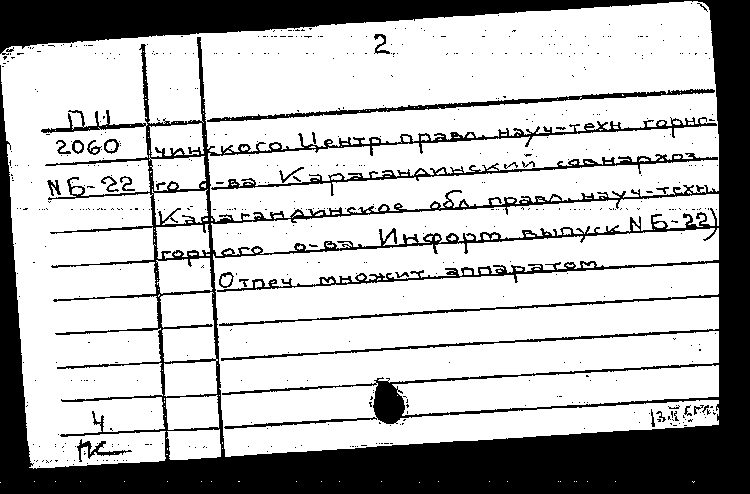 2
П II
2060 чинского. Центр. правл. науч-техн. горно-
NБ-22 го о-ва. Карагандинский совнархоз.
Карагандинское обл. правл. науч-техн.
горного о-ва. Информ. выпуск NБ-22)
Отпеч. множит. аппаратом.
4.